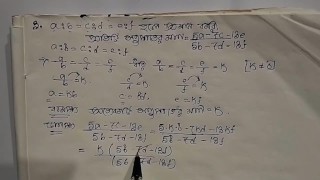 2. a:b = c:d = e:f হলে প্রমাণ করো
প্রতিটি অনুপাতের মান = 5a-7c-13e / 5b-7d-13f
a:b = c:d = e:f
⇒ a/b = c/d = e/f a/b = c/d = e/f = K [K ≠ 0]
a/b = K c/d = K e/f = K
a = bK c = dK e = fK
অনুপাতের মান = K
5a-7c-13e / 5b-7d-13f = 5Kb-7Kd-13Kf / 5b-7d-13f
= K (5b-7d-13f) / (5b-7d-13f)